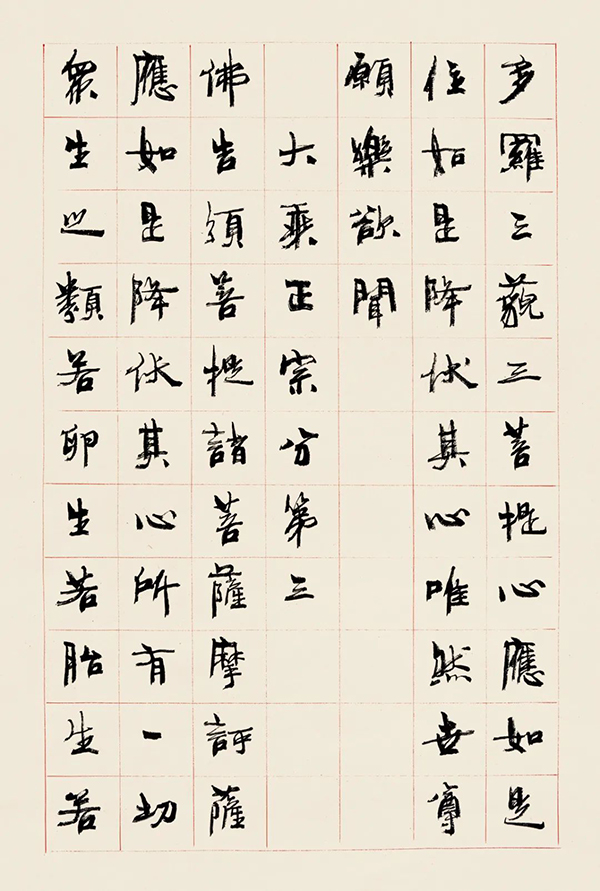 多羅三藐三菩提心應如是
住如是降伏其心唯然世尊
願樂欲聞
大乘正宗分第三
佛告須菩提諸菩薩摩訶薩
應如是降伏其心所有一切
眾生之類若卵生若胎生若